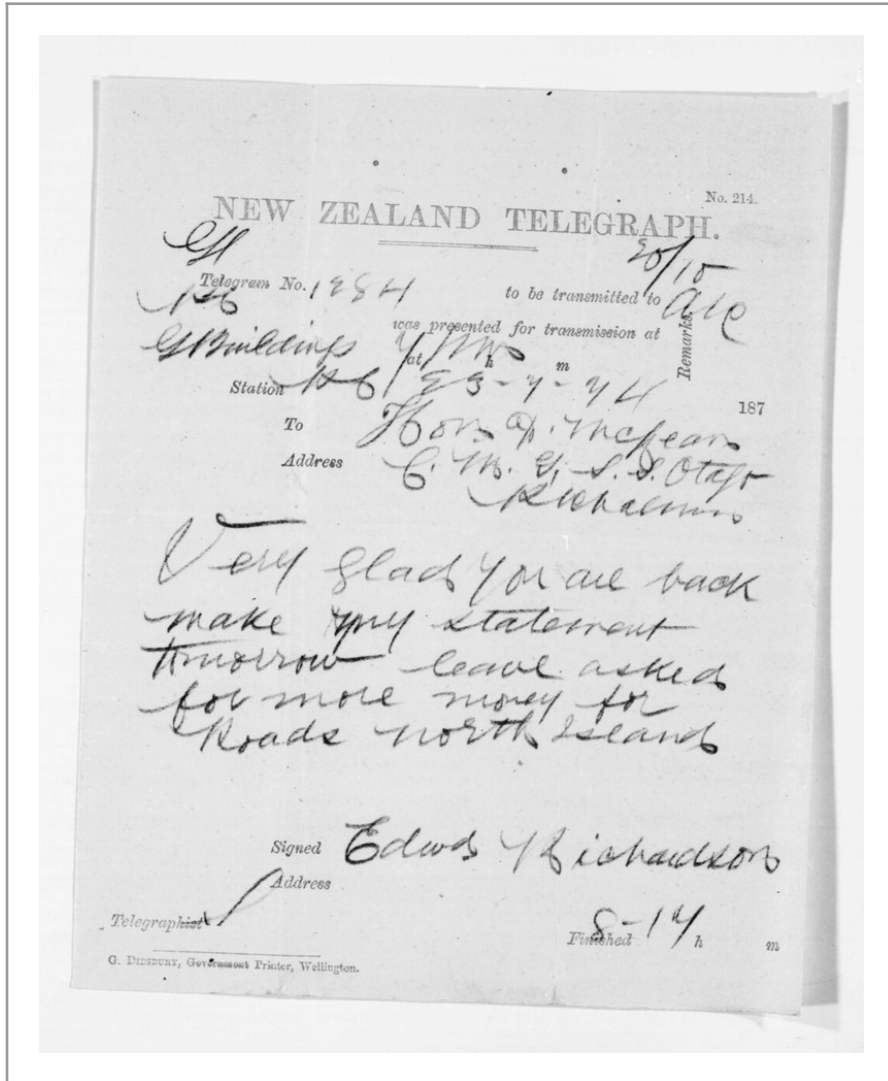 No. 214.
NEW ZEALAND TELEGRAPH.
20/10
Telegram No. 1984 to be transmitted to
was presented for transmission at
G Buildings at h m
Remarks.
Station 187
To Hon D. McLean
Address C. M. G. S. S. Otago
Very glad you are back
make my statement
tomorrow leave asked
for more money for
Roads north Island
Signed Edwd Richardson
Address
Telegraphist
Finished 8-14 h m
G. DIDSBURY, Government Printer, Wellington.